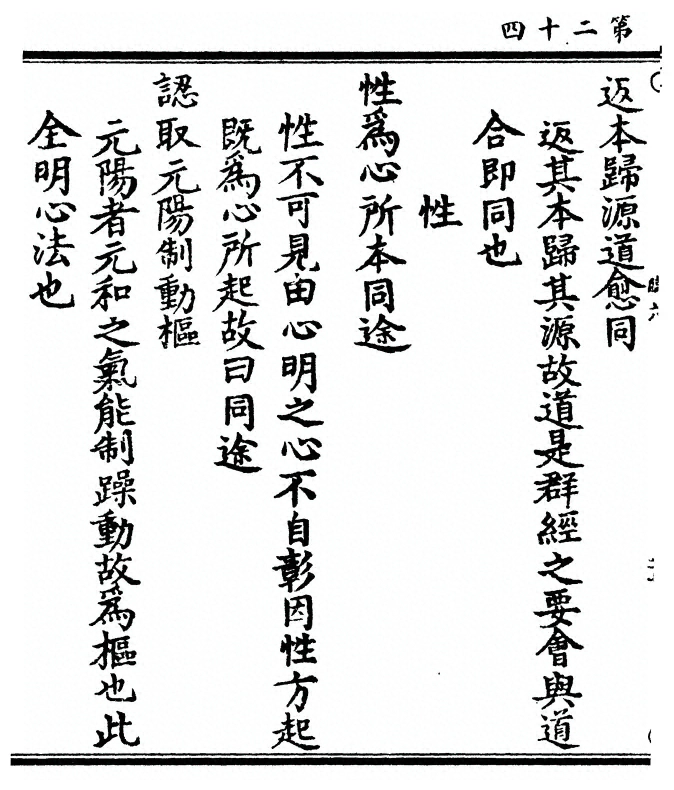 第二十四
返本歸源道愈同
返其本歸其源故道是群經之要會與道
合即同也
性
性爲心所本同途
性不可見由心明之心不自彰因性方起
既爲心所起故曰同途
認取元陽制動樞
元陽者元和之氣能制躁動故爲樞也此
全明心法也